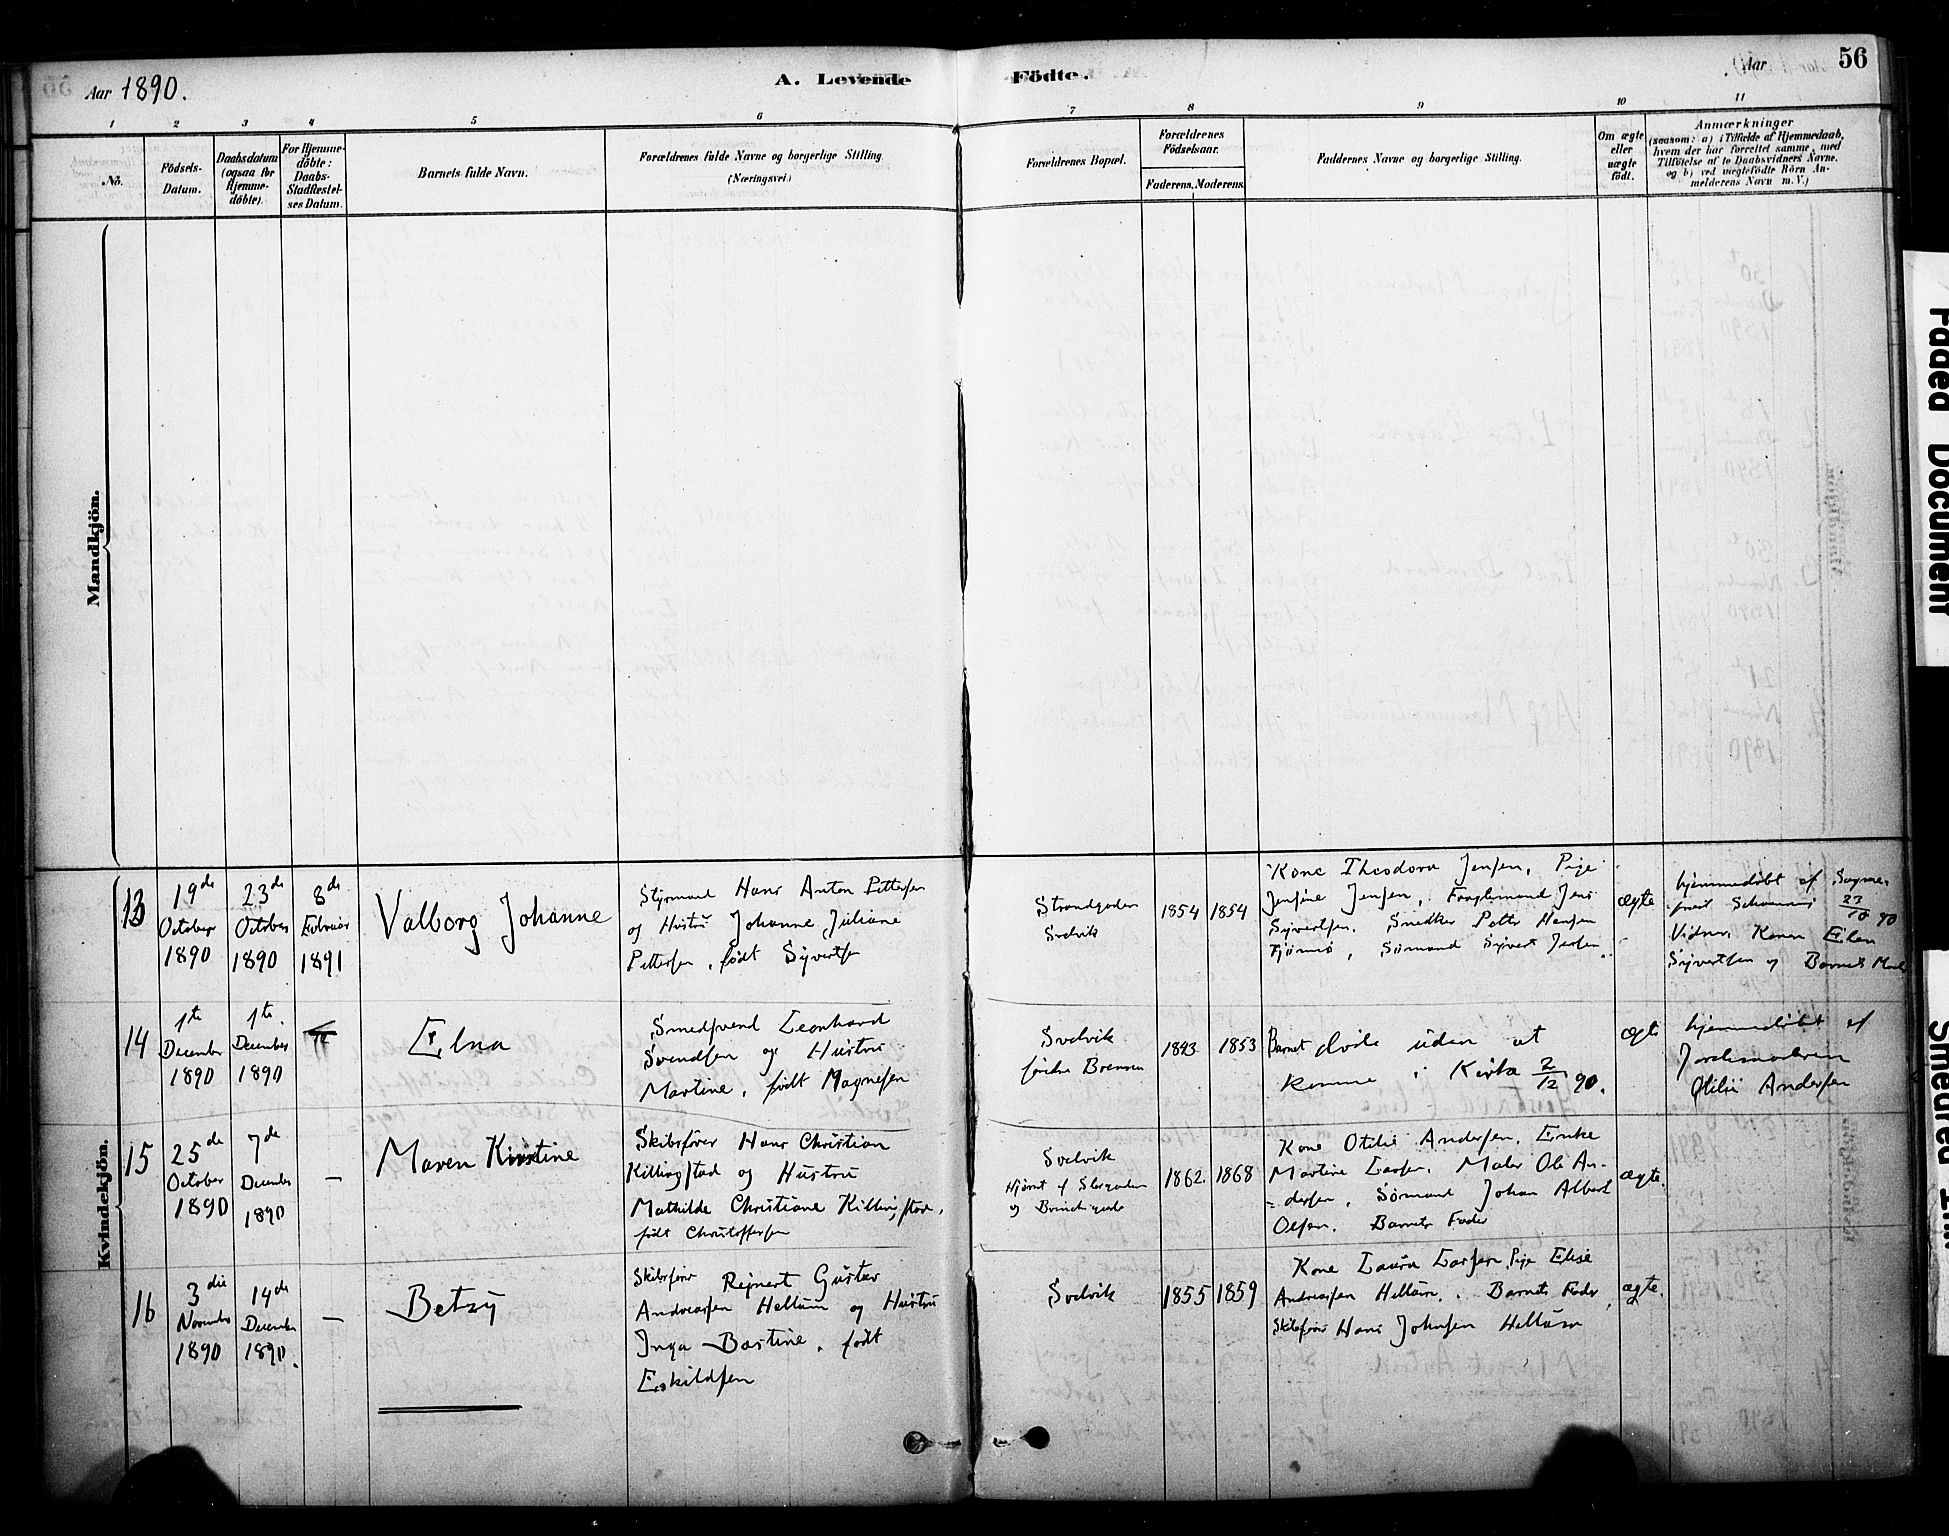 Aar 1890.
A. Levende Födte.
Aar
56
1 2 3 4 5 6 7 8 9 10 11
No.
Födsels-Datum.
Daabsdatum (ogsaa for Hjemmedöbte).
For Hjemmedöbte: Daabs-Stadfæstelses Datum.
Barnets fulde Navn.
Forældrenes fulde Navne og borgerlige Stilling
(Næringsvei.)
Forældrenes Bopæl.
Forældrenes Födselsaar.
Faderens. Moderens.
Faddernes Navne og borgerlige Stilling.
Om ægte eller uægte födt.
Anmærkninger
(saasom: a) i Tilfælde af Hjemmedaab,
hvem der har forrettet samme, med
Tilföielse af to Daabsvidners Navne.
og b) ved uægtefödte Börn An-
melderens Navn m. V.)
Mandkjön.
Kvindekjön.
13
19de October 1890
23de October 1890
8de Februar 1891
Valborg Johanne
Styrmand Hans Anton Pettersen
og Hustru Johanne Juliane
Pettersen, født Syvertsen
Strandgaden
Svelvik
1854 1854
Kone Theodora Jensen, Pige
Jensine Jensen, Fragtemand Jens
Syvertsen, Snedker Petter Hansen
Tjømø, Sømand Syvert Jensen.
ægte
hjemmedøbt af Sogne-
præst 23/10 90
Vidner Konen Elen
Syvertsen og Barnets Moder
14
1ste December 1890
1ste December 1890
Elna
Smedsvend Leonhard
Svendsen og Hustru
Martine, født Magnesen
Svelvik
søndre Brennen
1843 1853
Barnet døde uden at
komme i Kirke 2/12 90.
ægte
hjemmedøbt af
Jordemoderen
Otilie Andersen
15
25de October 1890
7de December 1890
—
Maren Kirstine
Skibsfører Hans Christian
Killingstad og Hustru
Mathilde Christiane Killingstad,
født Christoffersen
Svelvik
Hjørnet af Storgaden
og
1862. 1868
Kone Otilie Andersen, Enke
Martine Larsen. Maler Ole An-
=dersen, Sømand Johan Albert
Olsen, Barnets Fader
ægte.
16
3die November 1890
14de December 1890.
—
Betzy
Skibsfører Rejnert Gustav
Andreassen Hellum og Hustru
Inga Bastine, født
Eskildsen
Svelvik
1855 1859
Kone Laura Larsen, Pige Elise
Andreassen Hellum, Barnets Fader,
Skibsfører Hans Johnsen Hellum
ægte.
Faded Document
Smeared Ink